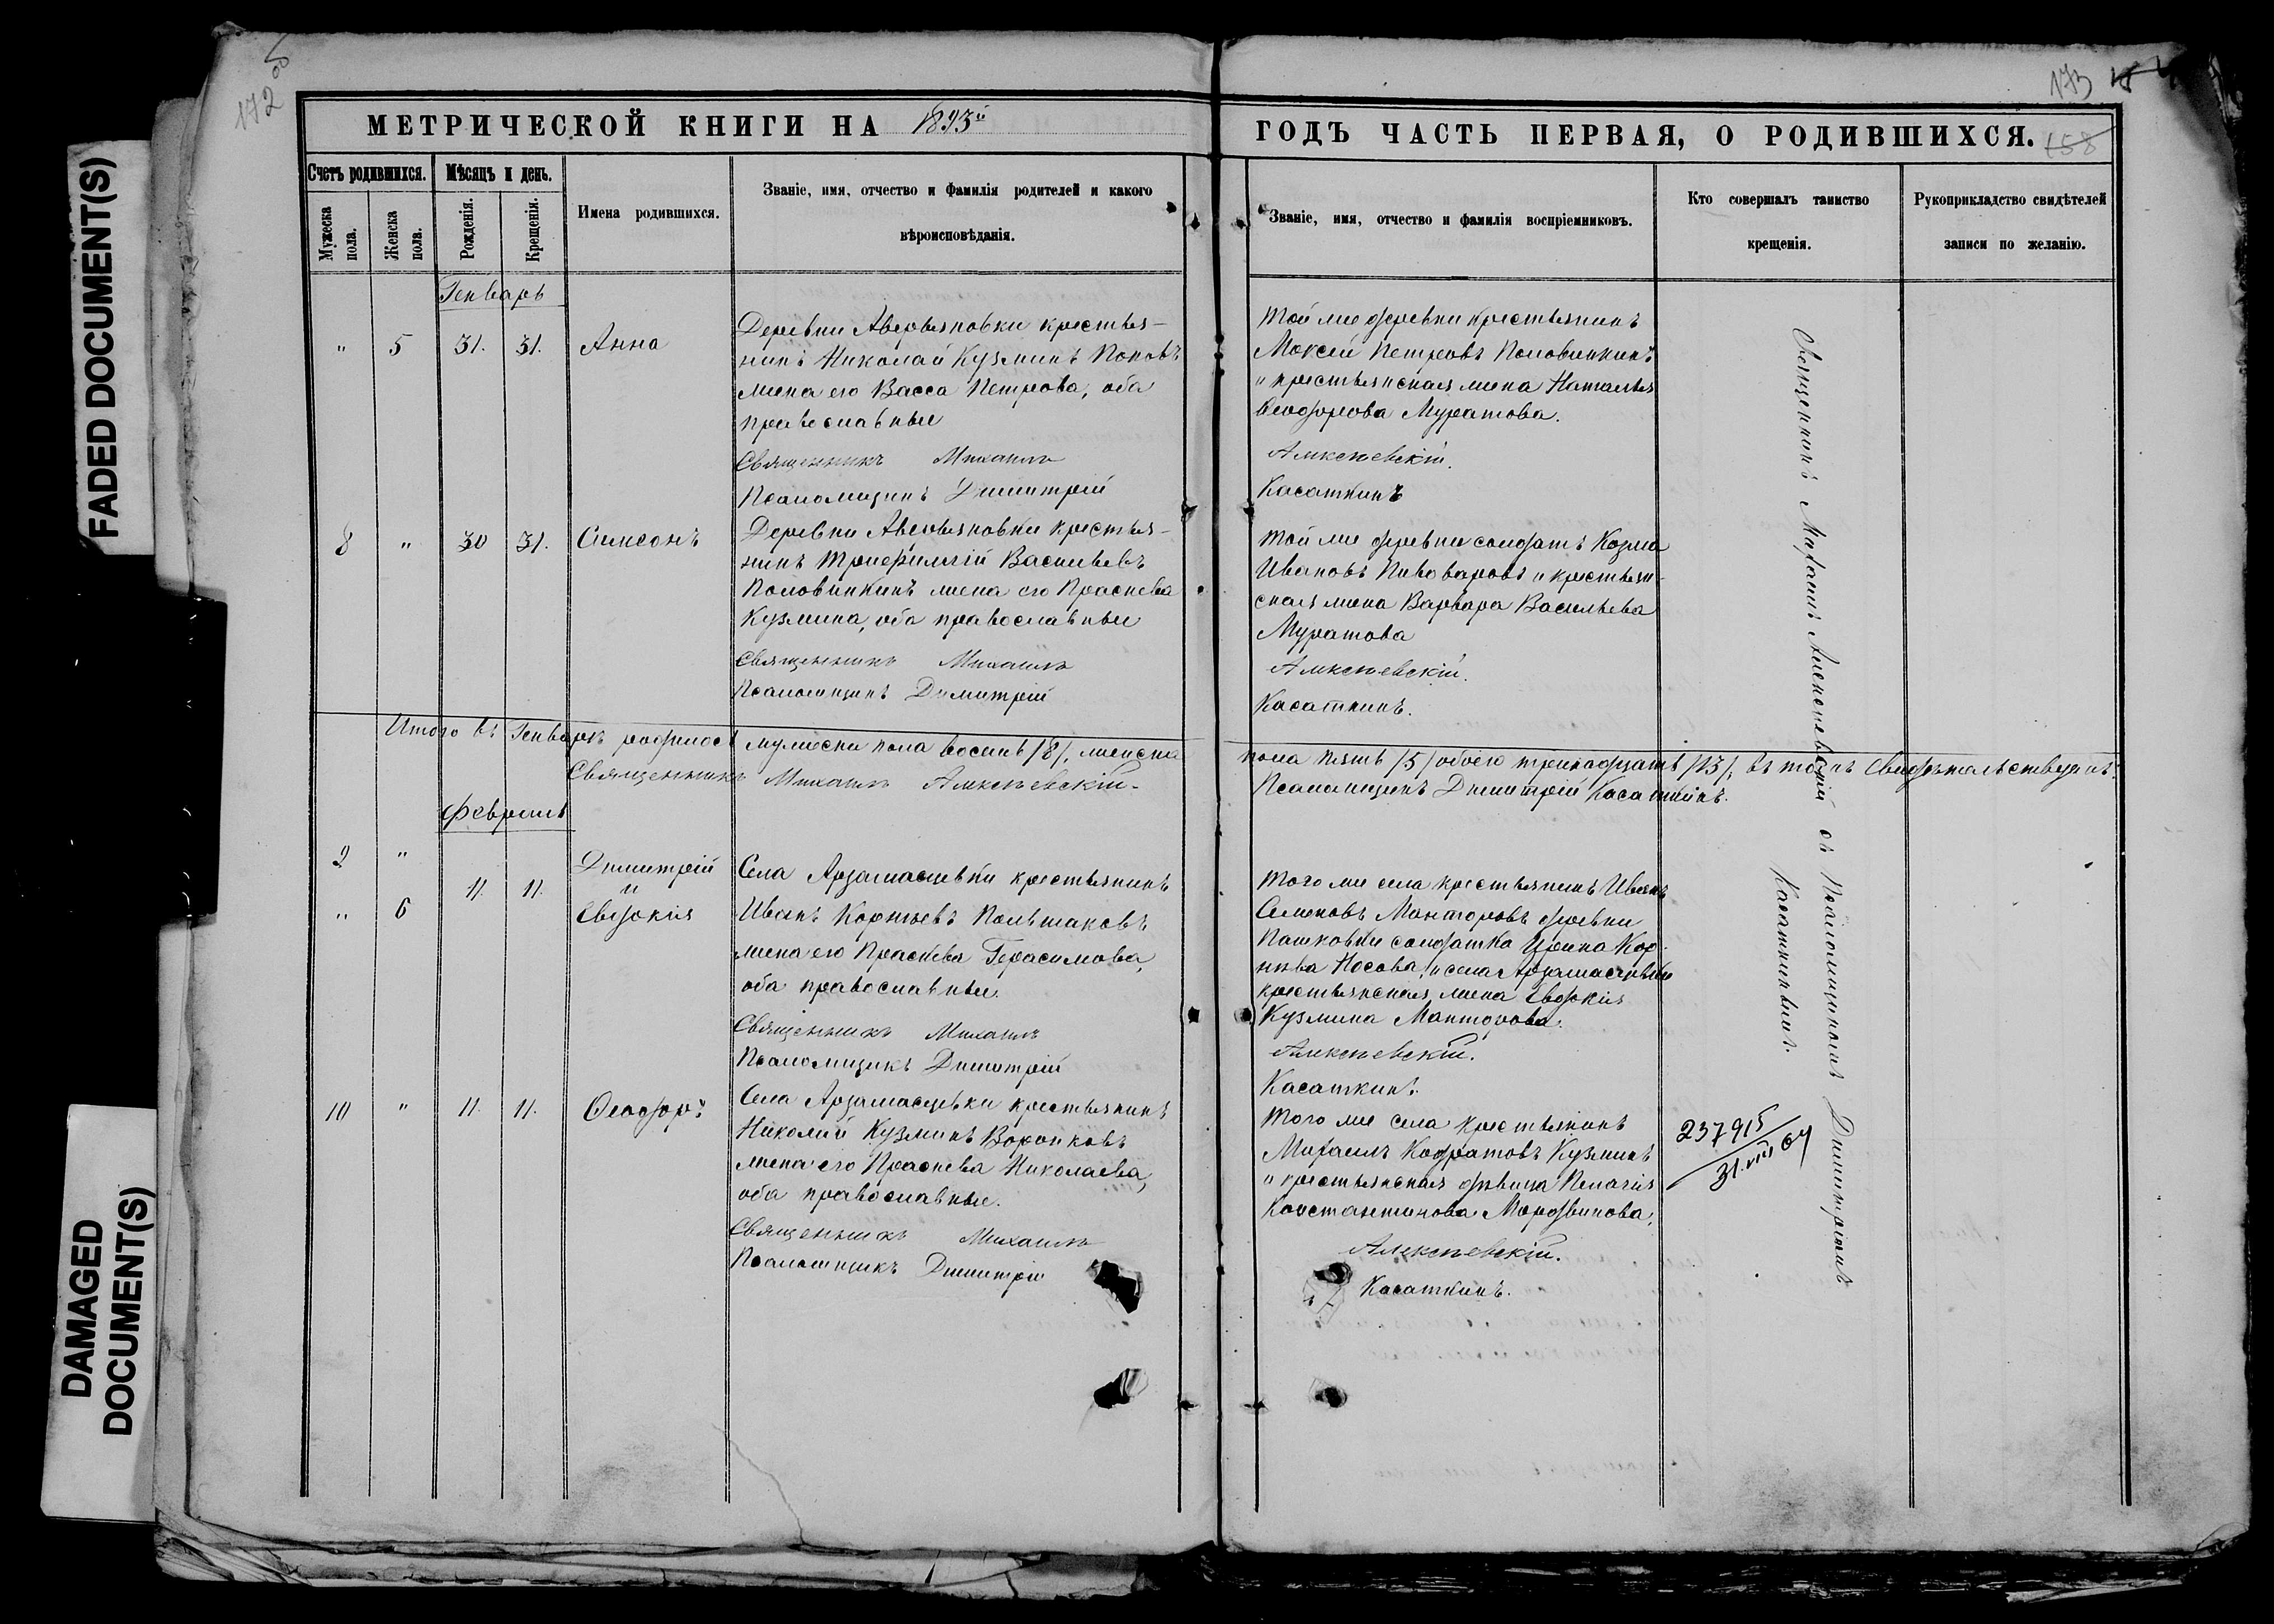 172
173
158
FADED DOCUMENT(S)
DAMAGED
DOCUMENT(S)
МЕТРИЧЕСКОЙ КНИГИ НА 1893й
ГОДЪ ЧАСТЬ ПЕРВАЯ, О РОДИВШИХСЯ.
Счетъ родившихся.
Мужеска пола.
Женска пола.
Мѣсяцъ и день.
Рожденія.
Крещенія.
Имена родившихся.
Званіе, имя, отчество и фамилія родителей и какого
вѣроисповѣданія.
Званіе, имя, отчество и фамилія воспріемниковъ.
Кто совершалъ таинство
крещенія.
Рукоприкладство свидѣтелей
записи по желанію.
Генварь
" 5 31. 31. Анна
Деревни Аверьяновки крестья-
нинъ Николай Кузминъ Поповъ
жена его Васса Петрова, оба
православные
Священникъ Михаилъ
Псаломщикъ Димитрій
Той же деревни крестьянинъ
Моксей Петровъ Половинкинъ
и крестьянская жена Наталья
Ѳеодорова Муратова.
Алексѣевскій.
Касаткинъ
8 " 30 31. Симеонъ
Деревни Аверьяновки крестья-
нинъ Трифиллій Васильевъ
Половинкинъ жена его Праскева
Кузмина, оба православные
Священникъ Михаилъ
Псаломщикъ Димитрій
Той же деревни солдатъ Козма
Ивановъ Пивоваровъ и крестьян-
ская жена Варвара Васильева
Муратова
Алексѣевскій.
Касаткинъ.
Итого въ Генварѣ родилось мужеска пола восемь /8/, женска пола пять /5/ обоего тринадцать /13/, въ томъ свидѣтельствуемъ:
Священникъ Михаилъ Алексѣевскій. Псаломщикъ Димитрій Касаткинъ.
Февраль
9 "
Димитрій
11. 11. и
" 6 Евдокія
Села Арзамасцевки крестьянинъ
Иванъ Корнѣевъ Польшаковъ
жена его Праскева Герасимова,
оба православные.
Священникъ Михаилъ
Псаломщикъ Димитрій
Того же села крестьянинъ Иванъ
Семеновъ Манторовъ деревни
Пашковки солдатка Ирина Кор-
нѣва Носова, и села Арзамасцевки
крестьянская жена Евдокія
Кузмина Манторова.
Алексѣевскій.
Касаткинъ.
10 " 11. 11. Ѳеодоръ
Села Арзамасцевки крестьянинъ
Николай Кузминъ Воронковъ
жена его Праскева Николаева,
оба православные.
Священникъ Михаилъ
Псаломщикъ Димитрій
Того же села крестьянинъ
Михаилъ Кодратовъ Кузминъ
и крестьянская дѣвица Пелагія
Константинова Мордвинова.
Алексѣевскій.
Касаткинъ.
Священникъ Михаилъ Алексѣевскій съ Псаломщикомъ Димитріемъ
Касаткинымъ.
237915
31.VIII 64